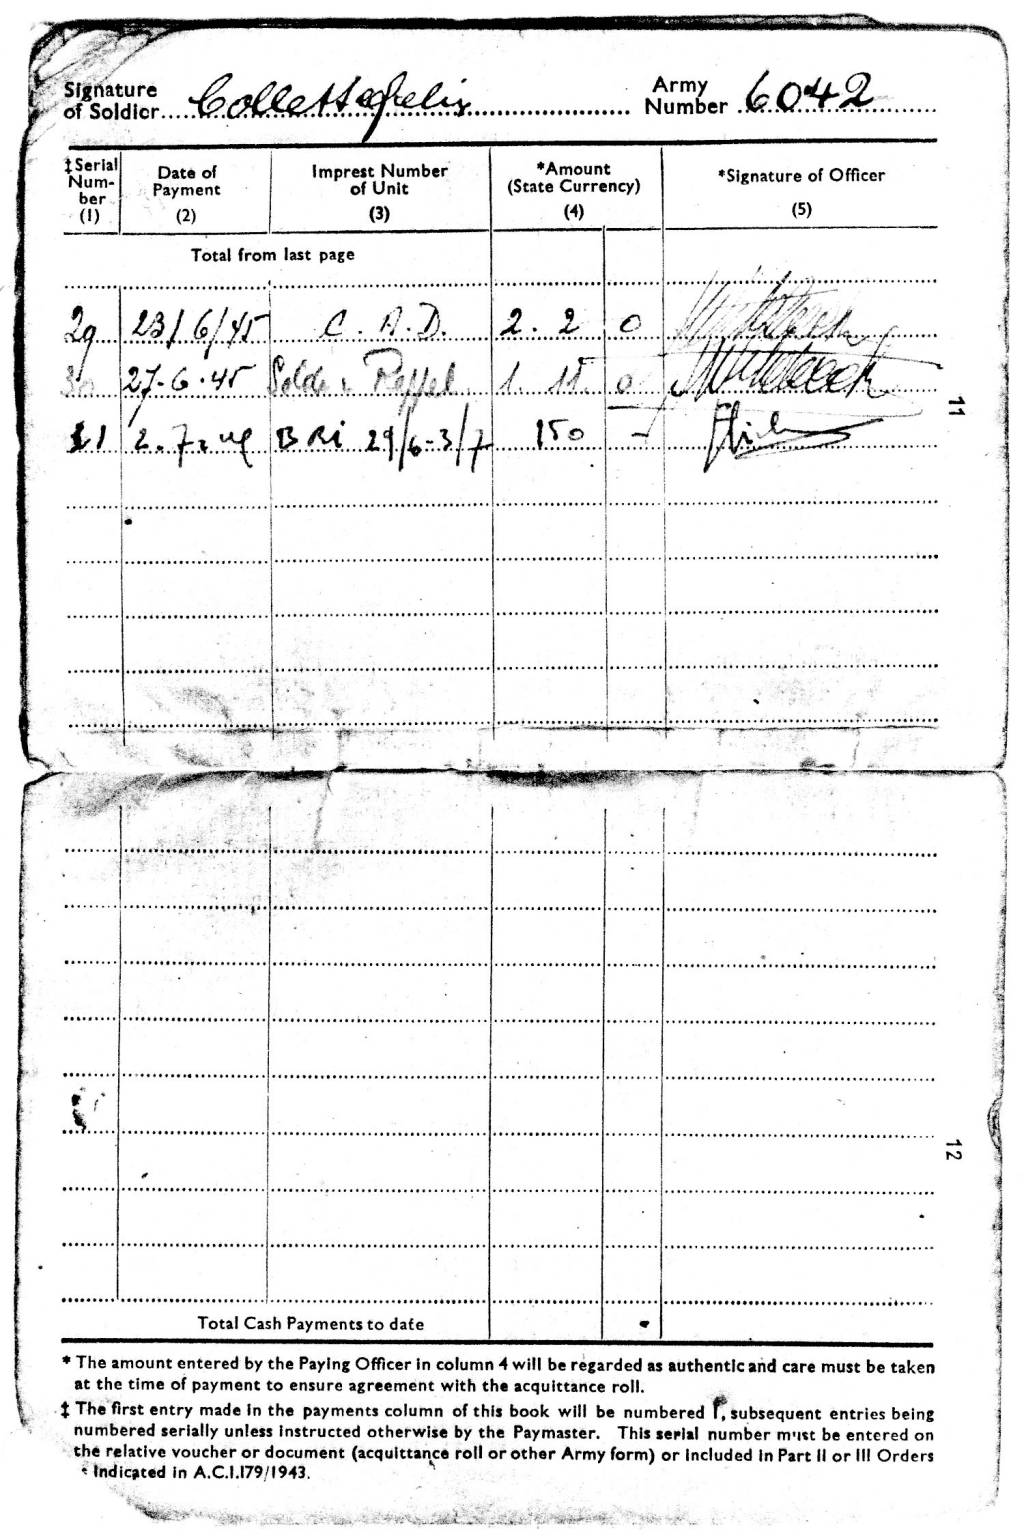 Signature of Soldier Collette Felix Army Number 6042
‡Serial Number (1) Date of Payment (2) Imprest Number of Unit (3) *Amount (State Currency) (4) *Signature of Officer (5)
Total from last page
29 23/6/45 C.A.D. 2. 2 0
30 27-6-45 Solde Rappel 1. 15 0
2.7. BRI 29/6-3/7 150 -
11
12
Total Cash Payments to date
* The amount entered by the Paying Officer in column 4 will be regarded as authentic and care must be taken
at the time of payment to ensure agreement with the acquittance roll.
‡ The first entry made in the payments column of this book will be numbered 1, subsequent entries being
numbered serially unless instructed otherwise by the Paymaster. This serial number must be entered on
the relative voucher or document (acquittance roll or other Army form) or included in Part II or III Orders
indicated in A.C.I.179/1943.